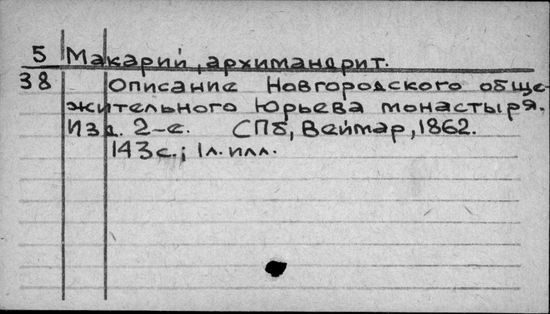 5 Макарий, архимандрит.
38 Описание Новгородского обще-
жительного Юрьева монастыря.
Изд. 2-е. СПб, Веймар, 1862.
143 с.; 1 л. илл.